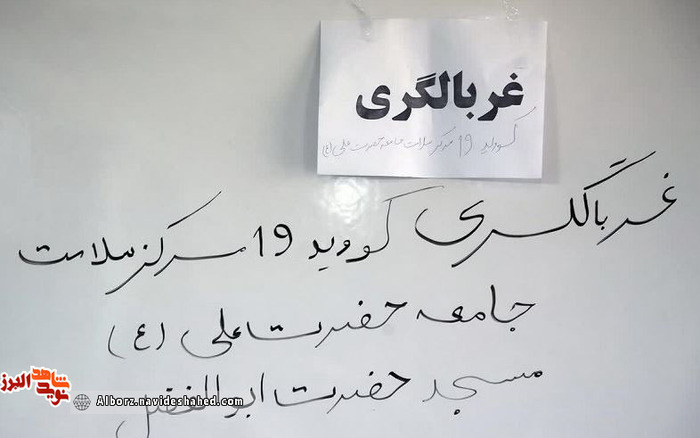 غربالگری
کووید 19 مرکز سلامت جامعه حضرت علی (ع)
غربالگری کووید 19 مرکز سلامت
جامعه حضرت علی (ع)
مسجد حضرت ابوالفضل
نوید شاهد البرز
Alborz.navideshahed.com